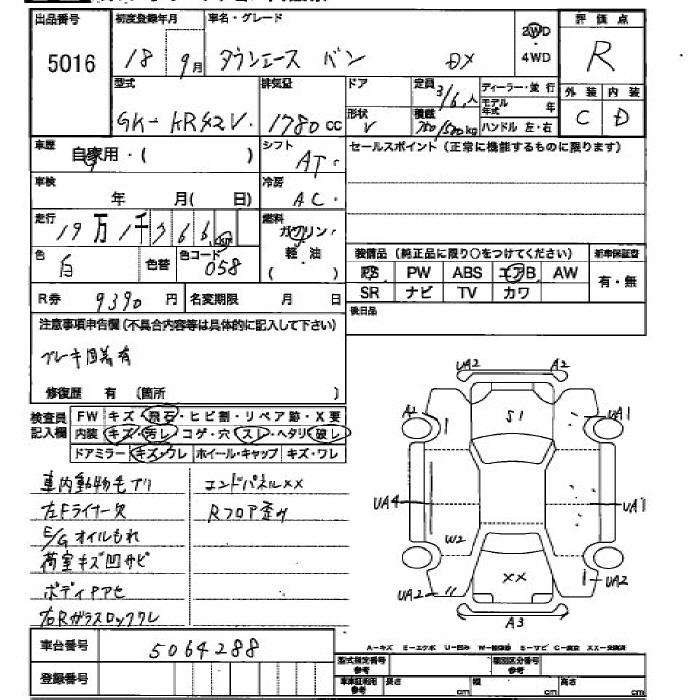 出品番号 初度登録年月 車名・グレード 評価点
5016 18 9月 タウンエース バン DX 2WD ・ 4WD R
型式 排気量 ドア 定員 3/6人 ディーラー・並行 外装 内装
GK-KR42V 1780cc 形状 V 積載 kg モデル年式 年 C D
ハンドル 左・右
車歴 自家用・( ) シフト AT セールスポイント(正常に機能するものに限ります)
車検 年 月( 日) 冷房 AC
走行 19万1千766 km 燃料 ガソリン・軽油 ( )
色 白 色替 色コード 058
装備品(純正品に限り○をつけてください) 新車保証書
PS PW ABS エアB AW 有・無
SR ナビ TV カワ
R券 9390円 名変期限 月 日 後日品
注意事項申告欄(不具合内容等は具体的に記入して下さい)
ブレーキ固着有
修復歴 有 〔箇所 〕
検査員記入欄 FW キズ・飛石・ヒビ割・リペア跡・X要
内装 キズ・汚レ・コゲ・穴・スレ・ヘタリ・破レ
ドアミラー キズ・ワレ ホイール・キャップ キズ・ワレ
車内動物毛アリ エンドパネルXX
左Fライナー欠 Rフロア歪ミ
E/Gオイルもれ
荷室キズ凹サビ
ボディアセ
右Rガラスロックワレ
UA2 A2
A1 S1 UA1
UA4 UA1
W2
UA2 XX UA2
A3
車台番号 5064288
A-キズ E-エクボ U-凹み
登録番号 型式指定番号 参考 類別区分番号 参考
車車証明用 参考 長さ cm 幅 cm 高さ cm